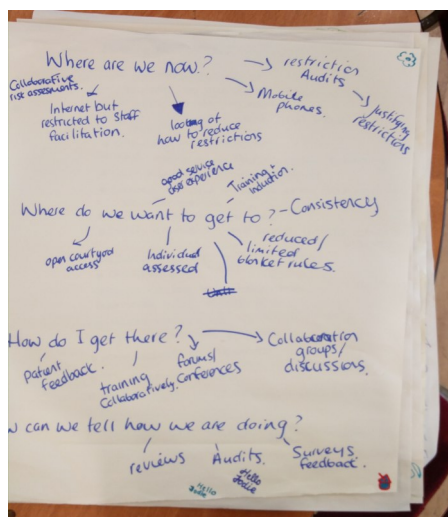 Where are we now?
restriction
Audits
Collaborative
risk assesments.
Internet but
restricted to Staff
facilitation.
looking at
how to reduce
restrictions
Mobile
phones.
Justifying
restrictions
good service
user experience
Training +
Induction.
Where do we want to get to? - Consistency
open courtyard
access
Individual
assessed
reduced/
limited
blanket rules.
How do I get there?
Collaboration
groups/
discussions.
patient
feedback.
training
Collaboratively.
forums/
Conferences
w can we tell how we are doing?
reviews
Audits.
Surveys
feedback.
Hello
Jodie
Hello
Jodie